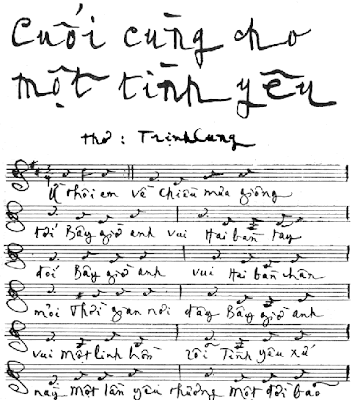 Cuối cùng cho
một tình yêu
thơ : Trịnh Cung
Ừ thôi em về Chiều mưa giông
tới Bây giờ anh vui Hai bàn tay
đói Bây giờ anh vui Hai bàn chân
mỏi Thời gian nơi đây Bây giờ anh
vui Một linh hồn rỗi Tình yêu xứ
này Một lần yêu thương Một đời bão